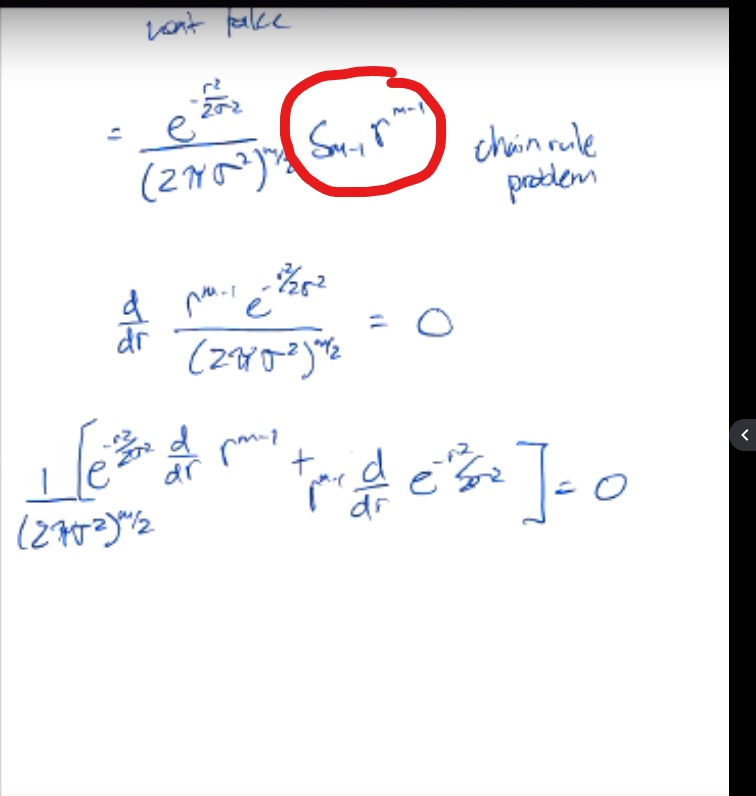 = e^{-r²/2σ²} / (2πσ²)^{m/2} S_{m-1} r^{m-1} chain rule problem
d/dr r^{m-1} e^{-r²/2σ²} / (2πσ²)^{m/2} = 0
1/(2πσ²)^{m/2} [e^{-r²/2σ²} d/dr r^{m-1} + r^{m-1} d/dr e^{-r²/2σ²}] = 0